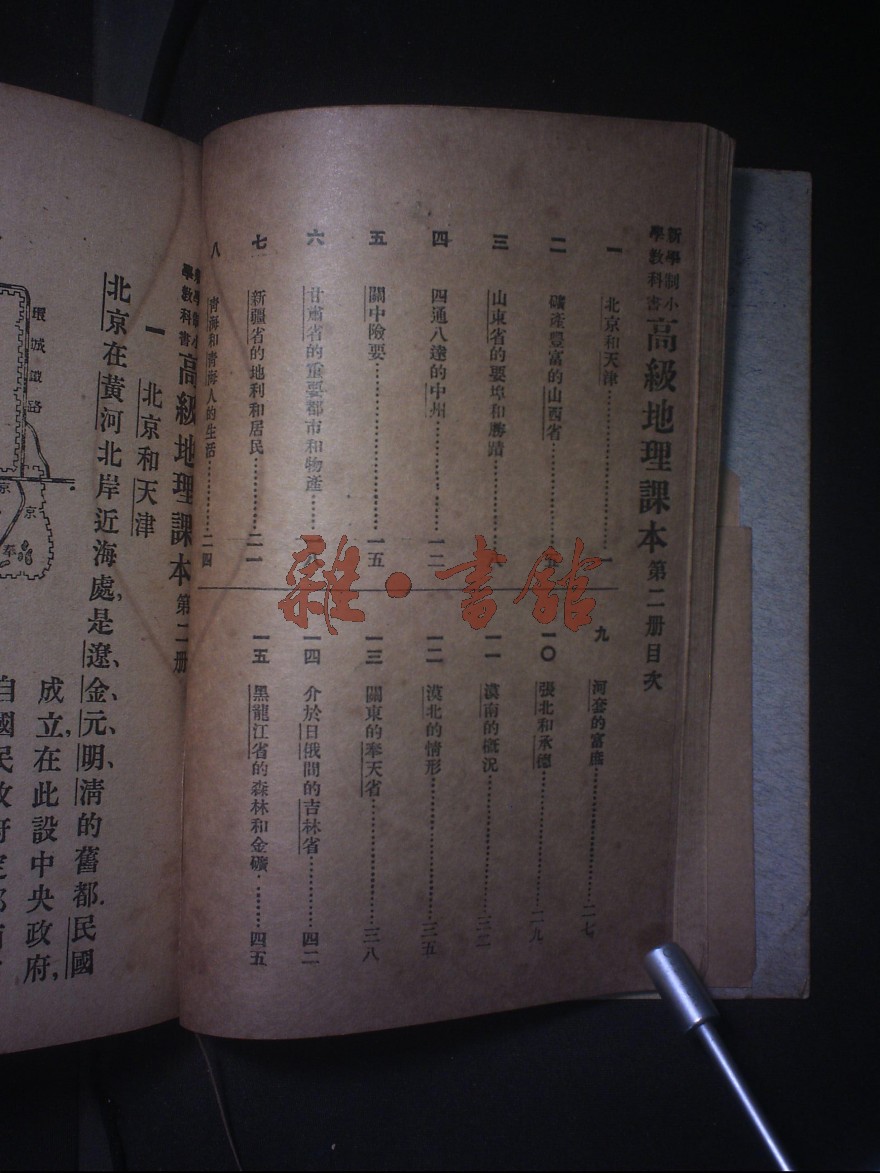 新學制小
學教科書
高級地理課本第二册目次
一 北京和天津…………一
二 礦產豐富的山西省…………
三 山東省的要埠和勝蹟…………
四 四通八達的中州…………一二
五 關中險要…………一五
六 甘肅省的重要都市和物產…………
七 新疆省的地利和居民…………二一
八 青海和青海人的生活…………二四
九 河套的富庶…………二七
一〇 張北和承德…………二九
一一 漠南的概況…………三二
一二 漠北的情形…………三五
一三 關東的奉天省…………三八
一四 介於日俄間的吉林省…………四二
一五 黑龍江省的森林和金礦…………四五
雜·書館
學教科書
高級地理課本第二册
一 北京和天津
北京在黃河北岸近海處,是遼、金、元、明、清的舊都.民國
成立,在此設中央政府,
自國民政府定都南
環城鐵路
京
奉